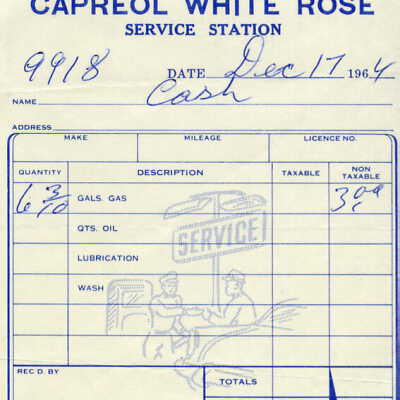 CAPREOL WHITE ROSE
SERVICE STATION
9918 DATE Dec 17 1964
NAME Cash
ADDRESS
MAKE MILEAGE LICENCE NO.
QUANTITY DESCRIPTION TAXABLE NON TAXABLE
6 3/10 GALS. GAS 3.00
QTS. OIL
SERVICE
LUBRICATION
WASH
REC'D. BY TOTALS